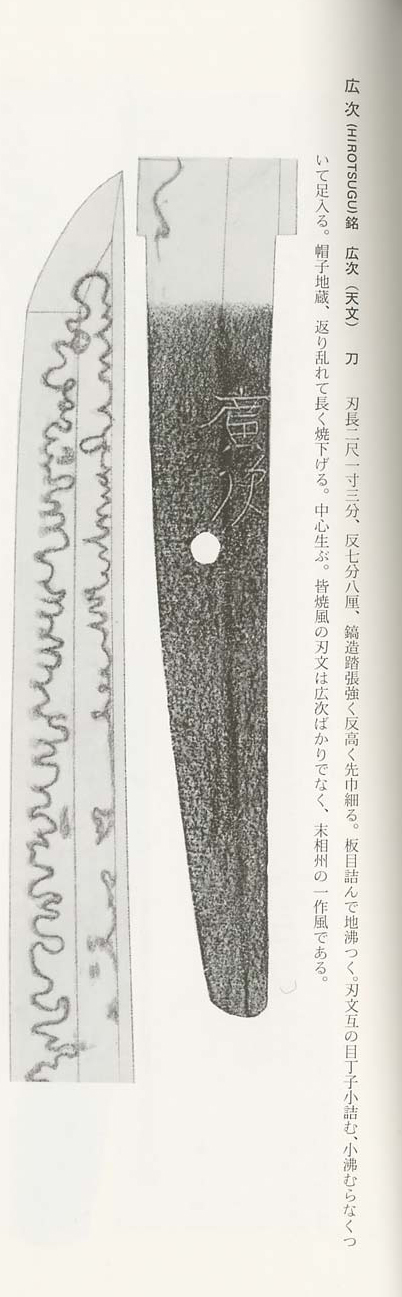 広次(HIROTSUGU)銘 広次(天文) 刀 刃長二尺一寸三分、反七分八厘、鎬造踏張強く反高く先巾細る。板目詰んで地沸つく。刃文互の目丁子小詰む、小沸むらなくつ
いて足入る。帽子地蔵、返り乱れて長く焼下げる。中心生ぶ。皆焼風の刃文は広次ばかりでなく、末相州の一作風である。
廣次